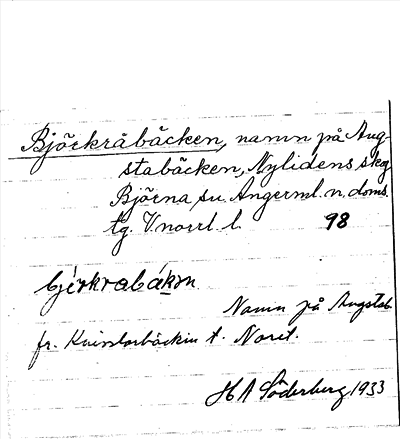 Björkråbäcken, namn på Aug-
stabäcken, Nylidens skog
Björna sn. Angerml. n. doms.
tg. V.norrl. l. 98
Namn på Augstab.
fr. t.
H A Söderberg 1933